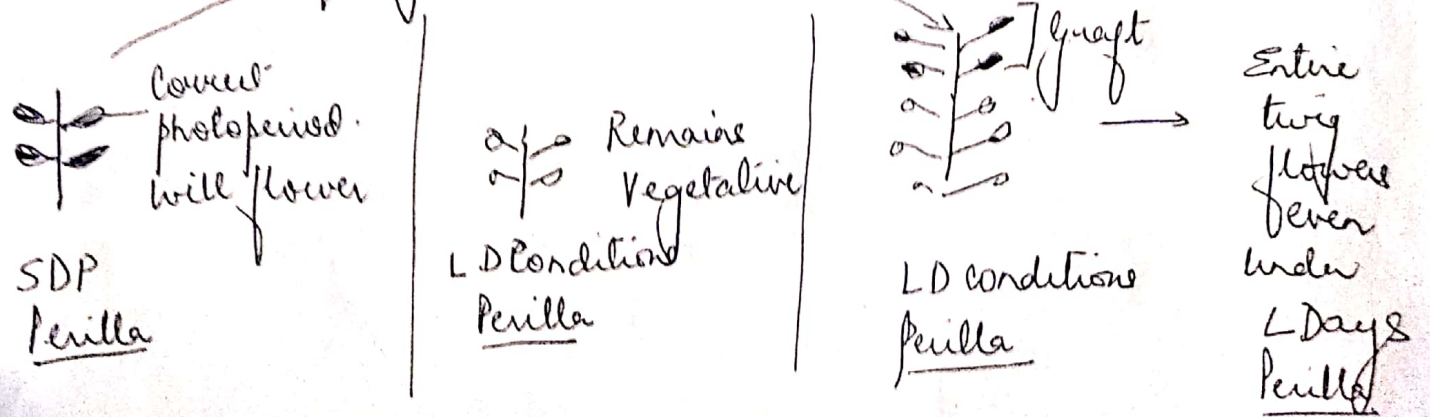 Correct
photoperiod.
will flower
SDP
Perilla
Remains
Vegetative
LD Conditions
Perilla
] Graft
LD conditions
Perilla
Entire
twig
flowers
even
under
L Days
Perilla